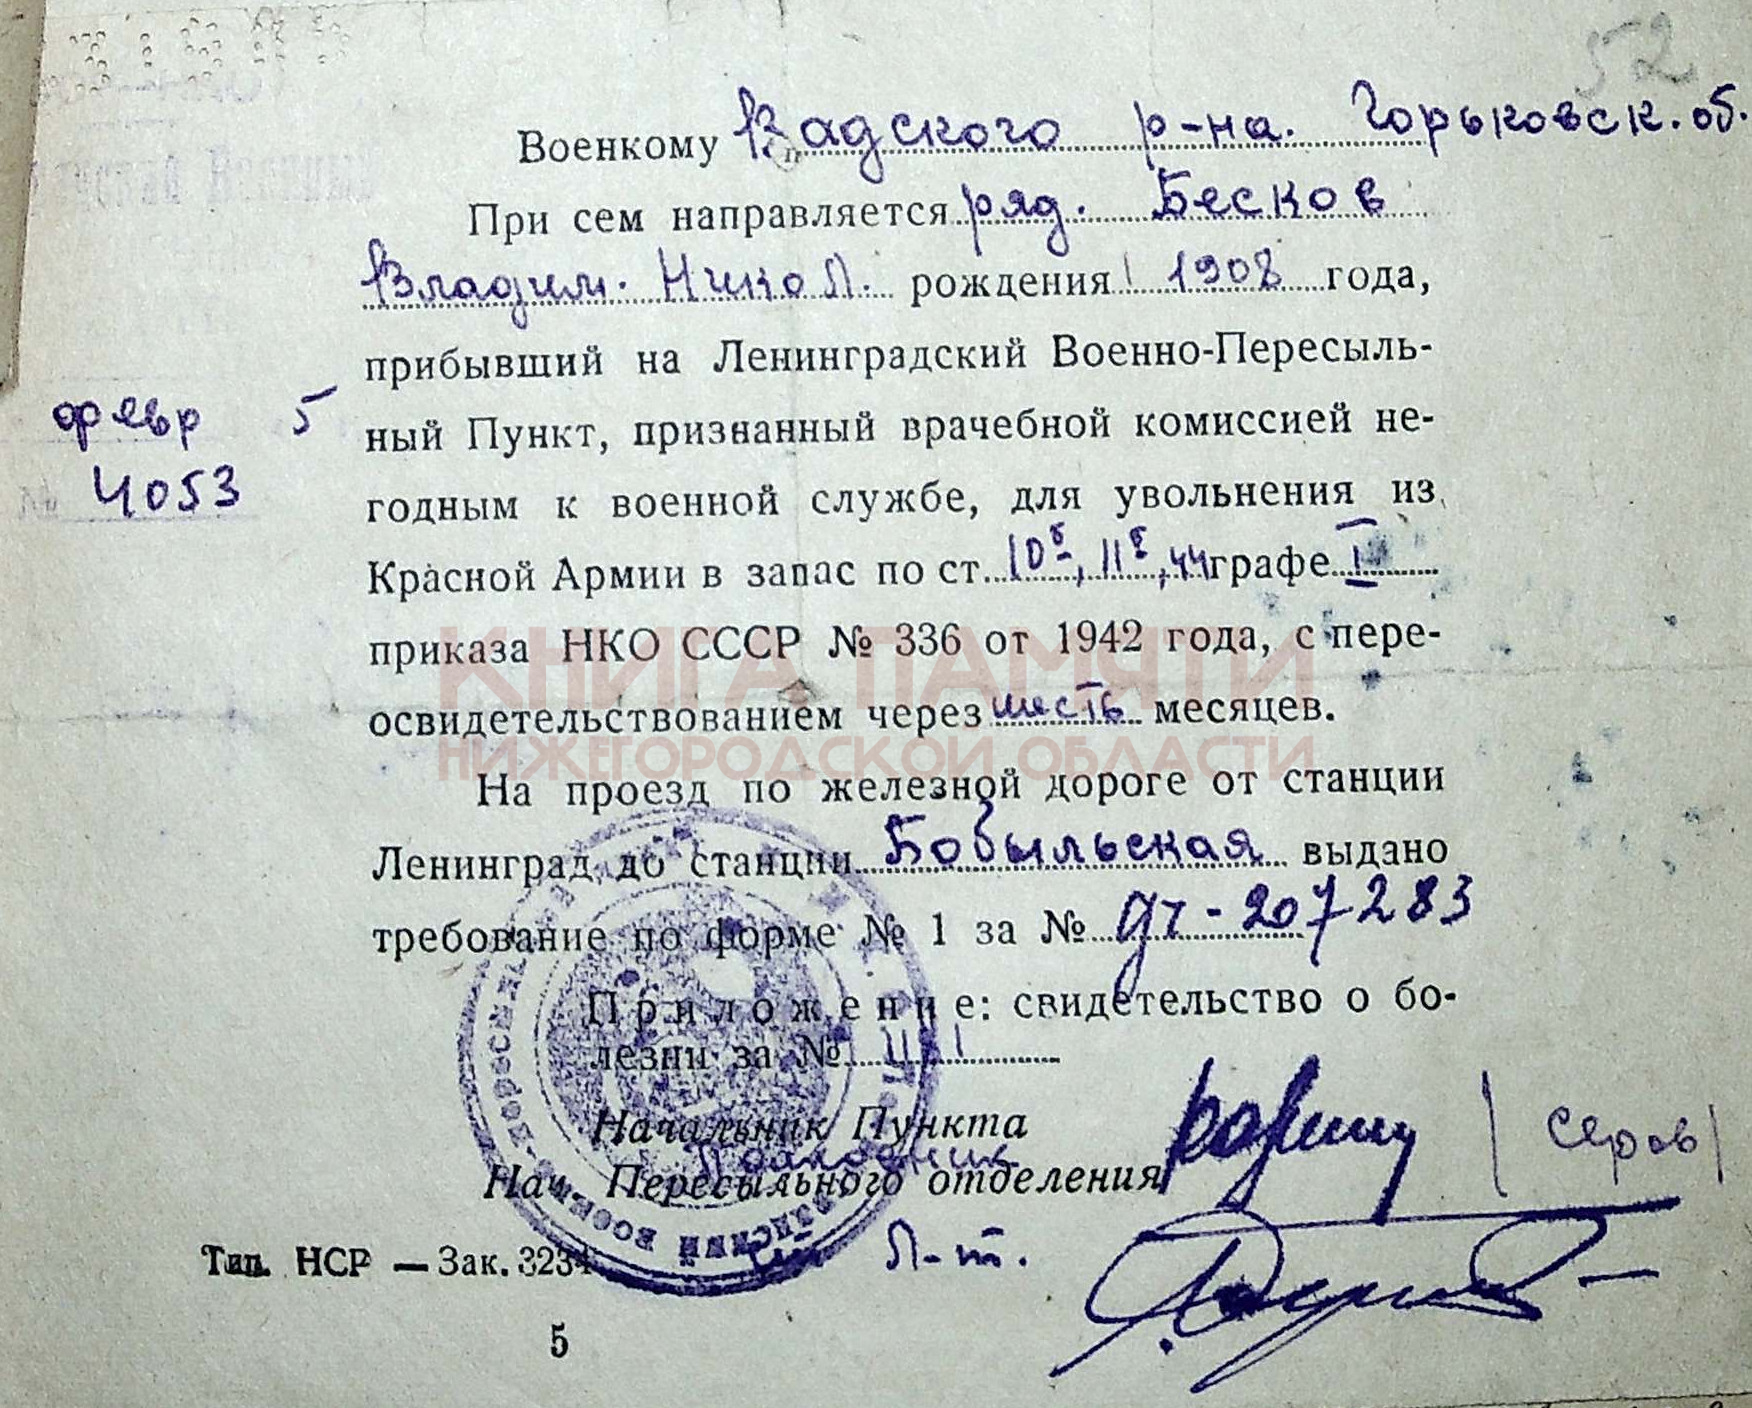 52
Военкому Вадского р-на. Горьковск. об.
При сем направляется ряд. Бесков
Владим. Никол. рождения 1908 года,
прибывший на Ленинградский Военно-Пересыль-
февр 5
ный Пункт, признанный врачебной комиссией не-
№ 4053
годным к военной службе, для увольнения из
Красной Армии в запас по ст. 10б, 11б, 44 графе I
приказа НКО СССР № 336 от 1942 года, с пере-
КНИГА ПАМЯТИ
освидетельствованием через шесть месяцев.
НИЖЕГОРОДСКОЙ ОБЛАСТИ
На проезд по железной дороге от станции
Ленинград до станции Бобыльская выдано
требование по форме № 1 за № 207283
Приложение: свидетельство о бо-
лезни за №
Начальник Пункта
Серов
Нач. Пересыльного отделения
ст. л-т.
Тип. НСР — Зак. 3234
5